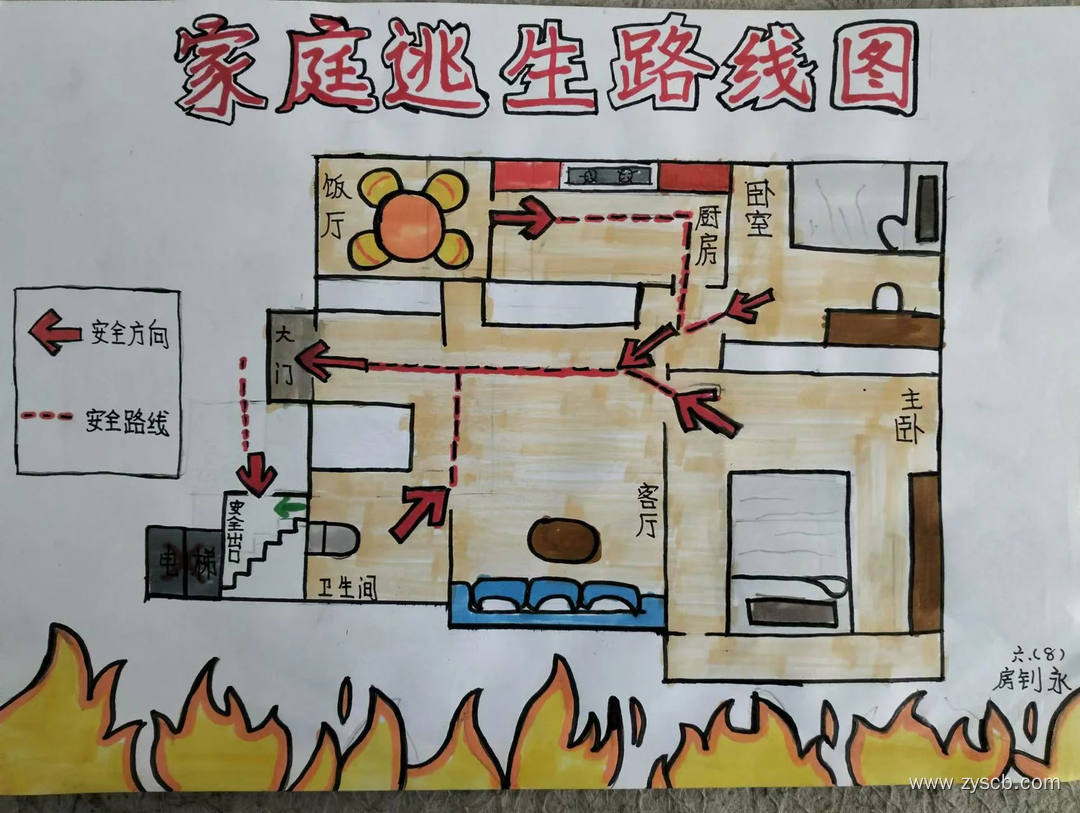 家庭逃生路线图
饭厅
厨房
卧室
大门
安全方向
安全路线
主卧
客厅
安全出口
电梯
卫生间
六.(8)
房钊永
www.zyscb.com